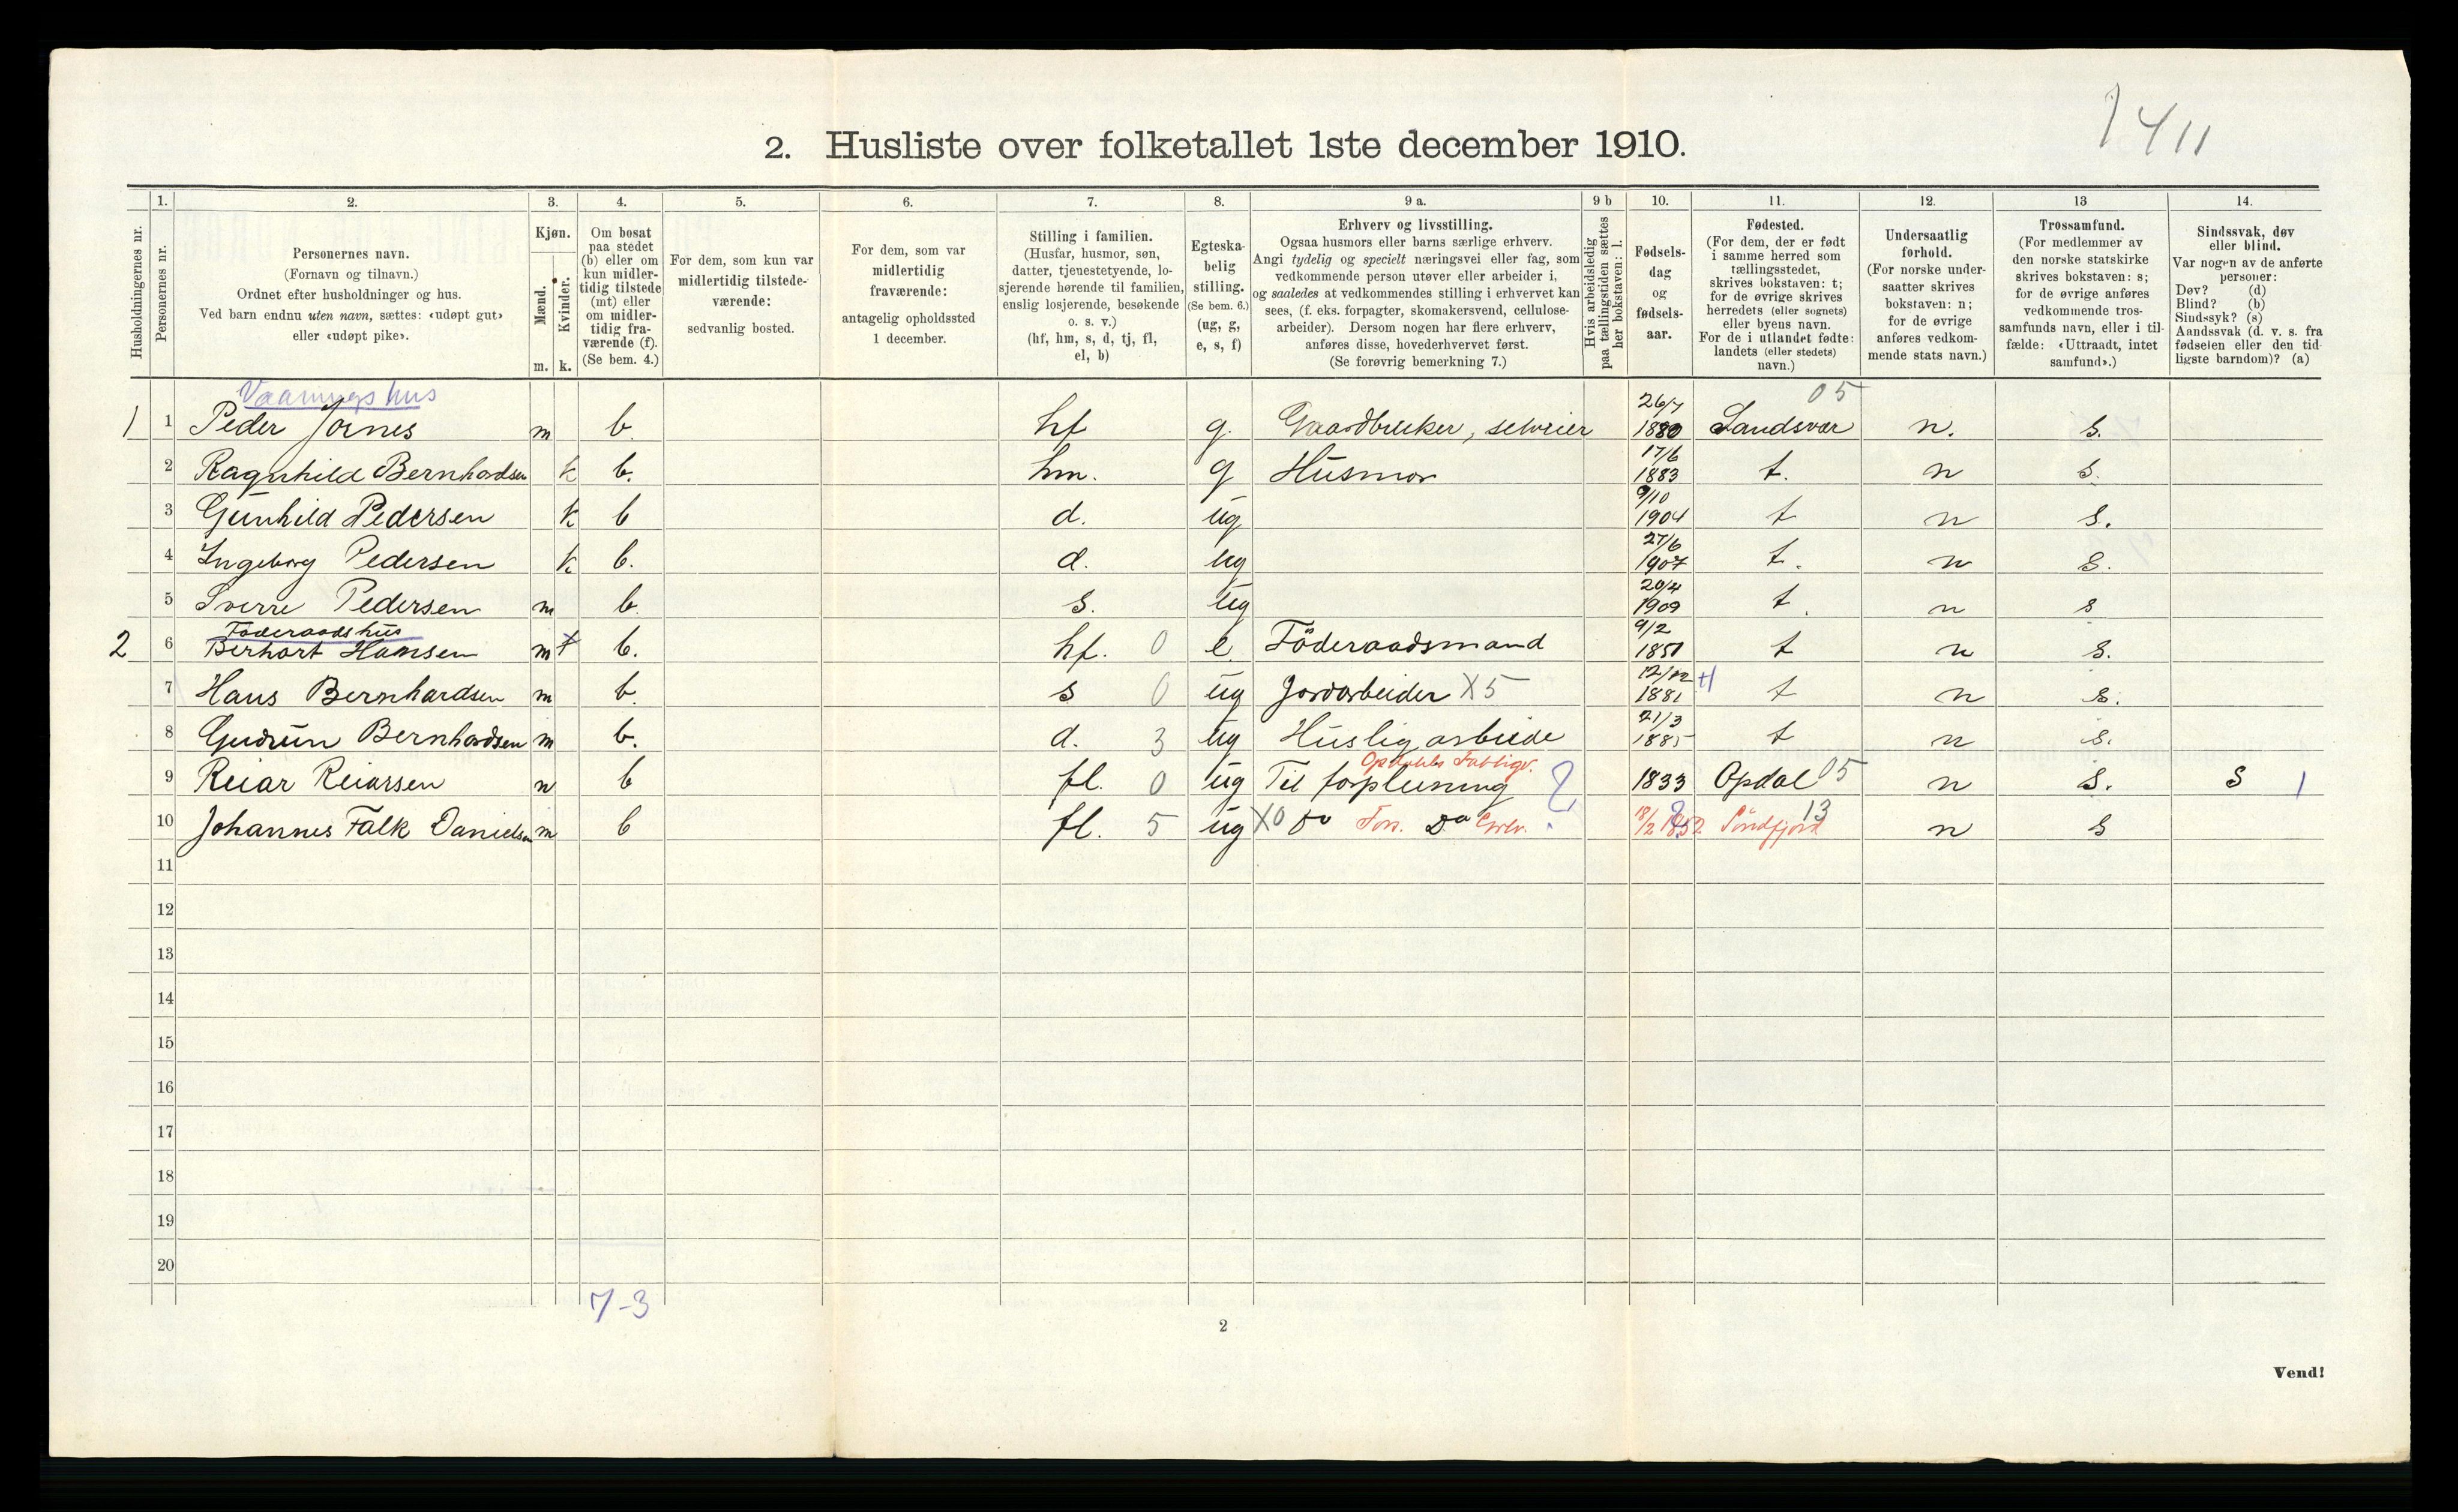 1411
2. Husliste over folketallet 1ste december 1910.
1. 2. 3. 4. 5. 6. 7. 8. 9 a. 9 b 10. 11. 12. 13 14.
Husholdningernes nr.
Personernes nr.
Personernes navn.
(Fornavn og tilnavn.)
Ordnet efter husholdninger og hus.
Ved barn endnu uten navn, sættes: «udøpt gut»
eller «udøpt pike».
Kjøn.
Mænd.
Kvinder.
m. k.
Om bosat
paa stedet
(b) eller om
kun midler-
tidig tilstede
(mt) eller
om midler-
tidig fra-
værende (f).
(Se bem. 4.)
For dem, som kun var
midlertidig tilstede-
værende:
sedvanlig bosted.
For dem, som var
midlertidig
fraværende:
antagelig opholdssted
1 december.
Stilling i familien.
(Husfar, husmor, søn,
datter, tjenestetyende, lo-
sjerende hørende til familien,
enslig losjerende, besøkende
o. s. v.)
(hf, hm, s, d, tj, fl,
el, b)
Egteska-
belig
stilling.
(Se bem. 6.)
(ug, g,
e, s, f)
Erhverv og livsstilling.
Ogsaa husmors eller barns særlige erhverv.
Angi tydelig og specielt næringsvei eller fag, som
vedkommende person utøver eller arbeider i,
og saaledes at vedkommendes stilling i erhvervet kan
sees, (f. eks. forpagter, skomakersvend, cellulose-
arbeider). Dersom nogen har flere erhverv,
anføres disse, hovederhvervet først.
(Se forøvrig bemerkning 7.)
Hvis arbeidsledig
paa tællingstiden sættes
her bokstaven: l.
Fødsels-
dag
og
fødsels-
aar.
Fødested.
(For dem, der er født
i samme herred som
tællingsstedet,
skrives bokstaven: t;
for de øvrige skrives
herredets (eller sognets)
eller byens navn.
For de i utlandet fødte:
landets (eller stedets)
navn.)
Undersaatlig
forhold.
(For norske under-
saatter skrives
bokstaven: n;
for de øvrige
anføres vedkom-
mende stats navn.)
Trossamfund.
(For medlemmer av
den norske statskirke
skrives bokstaven: s;
for de øvrige anføres
vedkommende tros-
samfunds navn, eller i til-
fælde: «Uttraadt, intet
samfund».)
Sindssvak, døv
eller blind.
Var nogen av de anførte
personer:
Døv? (d)
Blind? (b)
Sindssyk? (s)
Aandssvak (d. v. s. fra
fødselen eller den tid-
ligste barndom)? (a)
Vaaningshus 26/7 05
1 1 Peder Jornes m b. hf g. Gaardbruker, selveier 1880 Sandsvær n. s.
17/6
2 Ragnhild Bernhardsen k b. hm. g Husmor 1883 t. n s.
9/10
3 Gunhild Pedersen k b d. ug 1904 t n s.
27/6
4 Ingeborg Pedersen k b. d. ug 1907 t. n s.
20/4
5 Sverre Pedersen m b. s. ug 1909 t. n s
Föderaadshus 9/2
2 6 Berhart Hansen m b. hf. 0 e Föderaadsmand 1851 t n s.
12/12
7 Hans Bernhardsen m b. s 0 ug Jordarbeider X5 1881 t n s.
21/3
8 Gudrun Bernhardsen m b. d. 3 ug Huslig arbeide 1885 t n s.
Opdahls Fattigv.
9 Reiar Reiarsen m b fl. 0 ug Til forpleining ? 1833 Opdal 05 n s. S 1
10 Johannes Falk Danielsen m b fl. 5 ug X0 Do Do 18/2 1852 Söndfjord 13 n s
11
12
13
14
15
16
17
18
19
20
7-3
2
Vend!